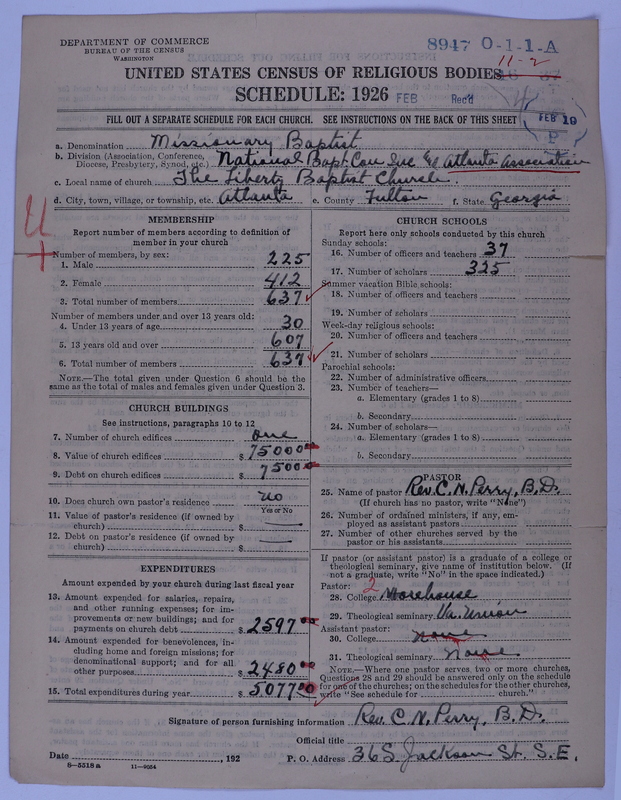 DEPARTMENT OF COMMERCE
BUREAU OF THE CENSUS
WASHINGTON
8947 O-1-1-A
11-2
UNITED STATES CENSUS OF RELIGIOUS BODIES
SCHEDULE: 1926
FEB Rec'd
FEB 19
P
FILL OUT A SEPARATE SCHEDULE FOR EACH CHURCH. SEE INSTRUCTIONS ON THE BACK OF THIS SHEET
a. Denomination Missionary Baptist
b. Division (Association, Conference, Diocese, Presbytery, Synod, etc.) National Bapt. Con Inc & Atlanta Association
c. Local name of church The Liberty Baptist Church.
d. City, town, village, or township, etc. Atlanta e. County Fulton f. State Georgia
MEMBERSHIP
Report number of members according to definition of
member in your church
Number of members, by sex:
1. Male 225
2. Female 412
3. Total number of members 637
Number of members under and over 13 years old:
4. Under 13 years of age 30
5. 13 years old and over 607
6. Total number of members 637
NOTE.—The total given under Question 6 should be
same as the total of males and females given under Question 3.
CHURCH BUILDINGS
See instructions, paragraphs 10 to 12
7. Number of church edifices one
8. Value of church edifices $ 75000 00
9. Debt on church edifices $ 7500 0
10. Does church own pastor's residence no
Yes or No
11. Value of pastor's residence (if owned by
church) $
12. Debt on pastor's residence (if owned by
church) $
EXPENDITURES
Amount expended by your church during last fiscal year
13. Amount expended for salaries, repairs,
and other running expenses; for im-
provements or new buildings; and for
payments on church debt $ 2597 00
14. Amount expended for benevolences, in-
cluding home and foreign missions; for
denominational support; and for all
other purposes $ 2480 00
15. Total expenditures during year $ 5077 00
CHURCH SCHOOLS
Report here only schools conducted by this church
Sunday schools:
16. Number of officers and teachers 37
17. Number of scholars 325
Summer vacation Bible schools:
18. Number of officers and teachers
19. Number of scholars
Week-day religious schools:
20. Number of officers and teachers
21. Number of scholars
Parochial schools:
22. Number of administrative officers
23. Number of teachers—
a. Elementary (grades 1 to 8)
b. Secondary
24. Number of scholars—
a. Elementary (grades 1 to 8)
b. Secondary
PASTOR
25. Name of pastor Rev. C. N. Perry, B. D.
(If church has no pastor, write "None")
26. Number of ordained ministers, if any, em-
ployed as assistant pastors
27. Number of other churches served by the
pastor or his assistants
If pastor (or assistant pastor) is a graduate of a college or
theological seminary, give name of institution below. (If
not a graduate, write "No" in the space indicated.)
Pastor: 2
28. College Morehouse
29. Theological seminary Va. Union
Assistant pastor:
30. College None
31. Theological seminary None
NOTE.—Where one pastor serves two or more churches,
Questions 28 and 29 should be answered only on the schedule
for one of the churches; on the schedules for the other churches,
write "See schedule for church."
Signature of person furnishing information Rev. C. N. Perry, B. D.
Official title
Date , 192 P. O. Address 36 S. Jackson St. S. E.
8—5518 a 11—9564